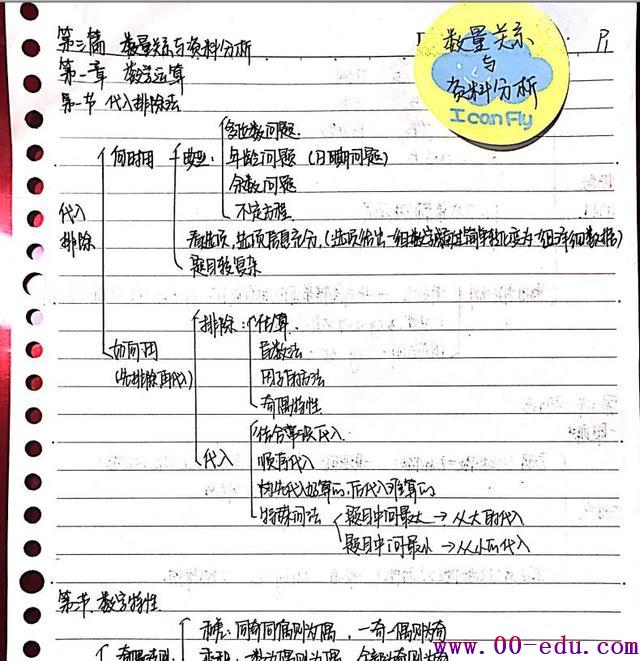 第三篇 数量关系与资料分析
P1
第一章 数学运算
第一节 代入排除法
数量关系
与
资料分析
I can Fly
代入
排除
何时用
典型:
多位数问题
年龄问题 (日期问题)
余数问题
不定方程
看选项,选项信息充分,(选项给出一组数字或通过简单转化变为一组详细数据)
题目较复杂
如何用
(先排除再代入)
排除:
估算
尾数法
因子特性法
奇偶特性
代入
结合常识代入
顺序代入
优先代入好算的,后代入难算的
特殊问法
题目中问最大→从大的代入
题目中问最小→从小的代入
第二节 数字特性
奇偶法则:
和差:同奇同偶则为偶,一奇一偶则为奇
乘积:一数为偶则为偶,全部为奇则为奇
www.00-edu.com